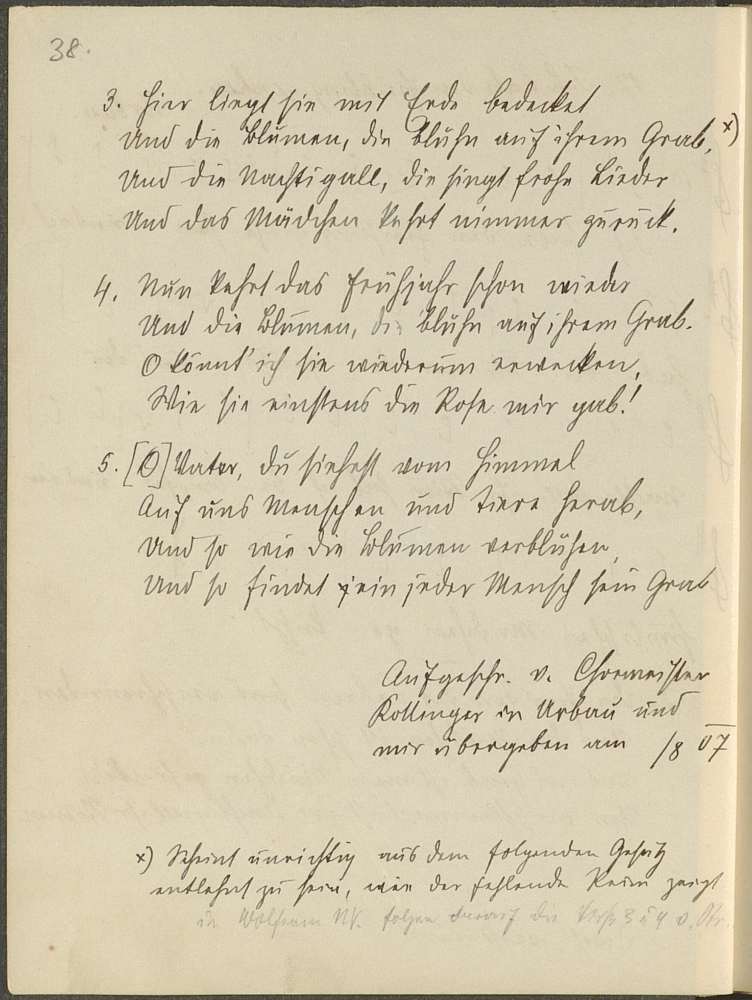 38.
3. Hier liegt sie mit Erde bedecket
Und die Blumen, die blühn auf ihrem Grab, x)
Und die Nachtigall, die singt frohe Lieder
Und das Mädchen kehrt nimmer zurück.
4. Nun kehrt das Frühjahr schon wieder
Und die Blumen, die blühn auf ihrem Grab.
O könnt' ich sie wiederum erwecken,
Wie sie einstens die Rose mir gab!
5. [O] Vater, du siehest vom Himmel
Auf uns Menschen und Tiere herab,
Und so wie die Blumen verblühen,
Und so findet ein jeder Mensch sein Grab
Aufgeschr. v. Chormeister
Kollinger in Urbau und
mir übergeben am /8 07
x) Scheint unrichtig aus dem folgenden Gesätz
entlehnt zu sein, wie der fehlende Reim zeigt
in Wolfram NV. folgen darauf die 3 u 4 v.